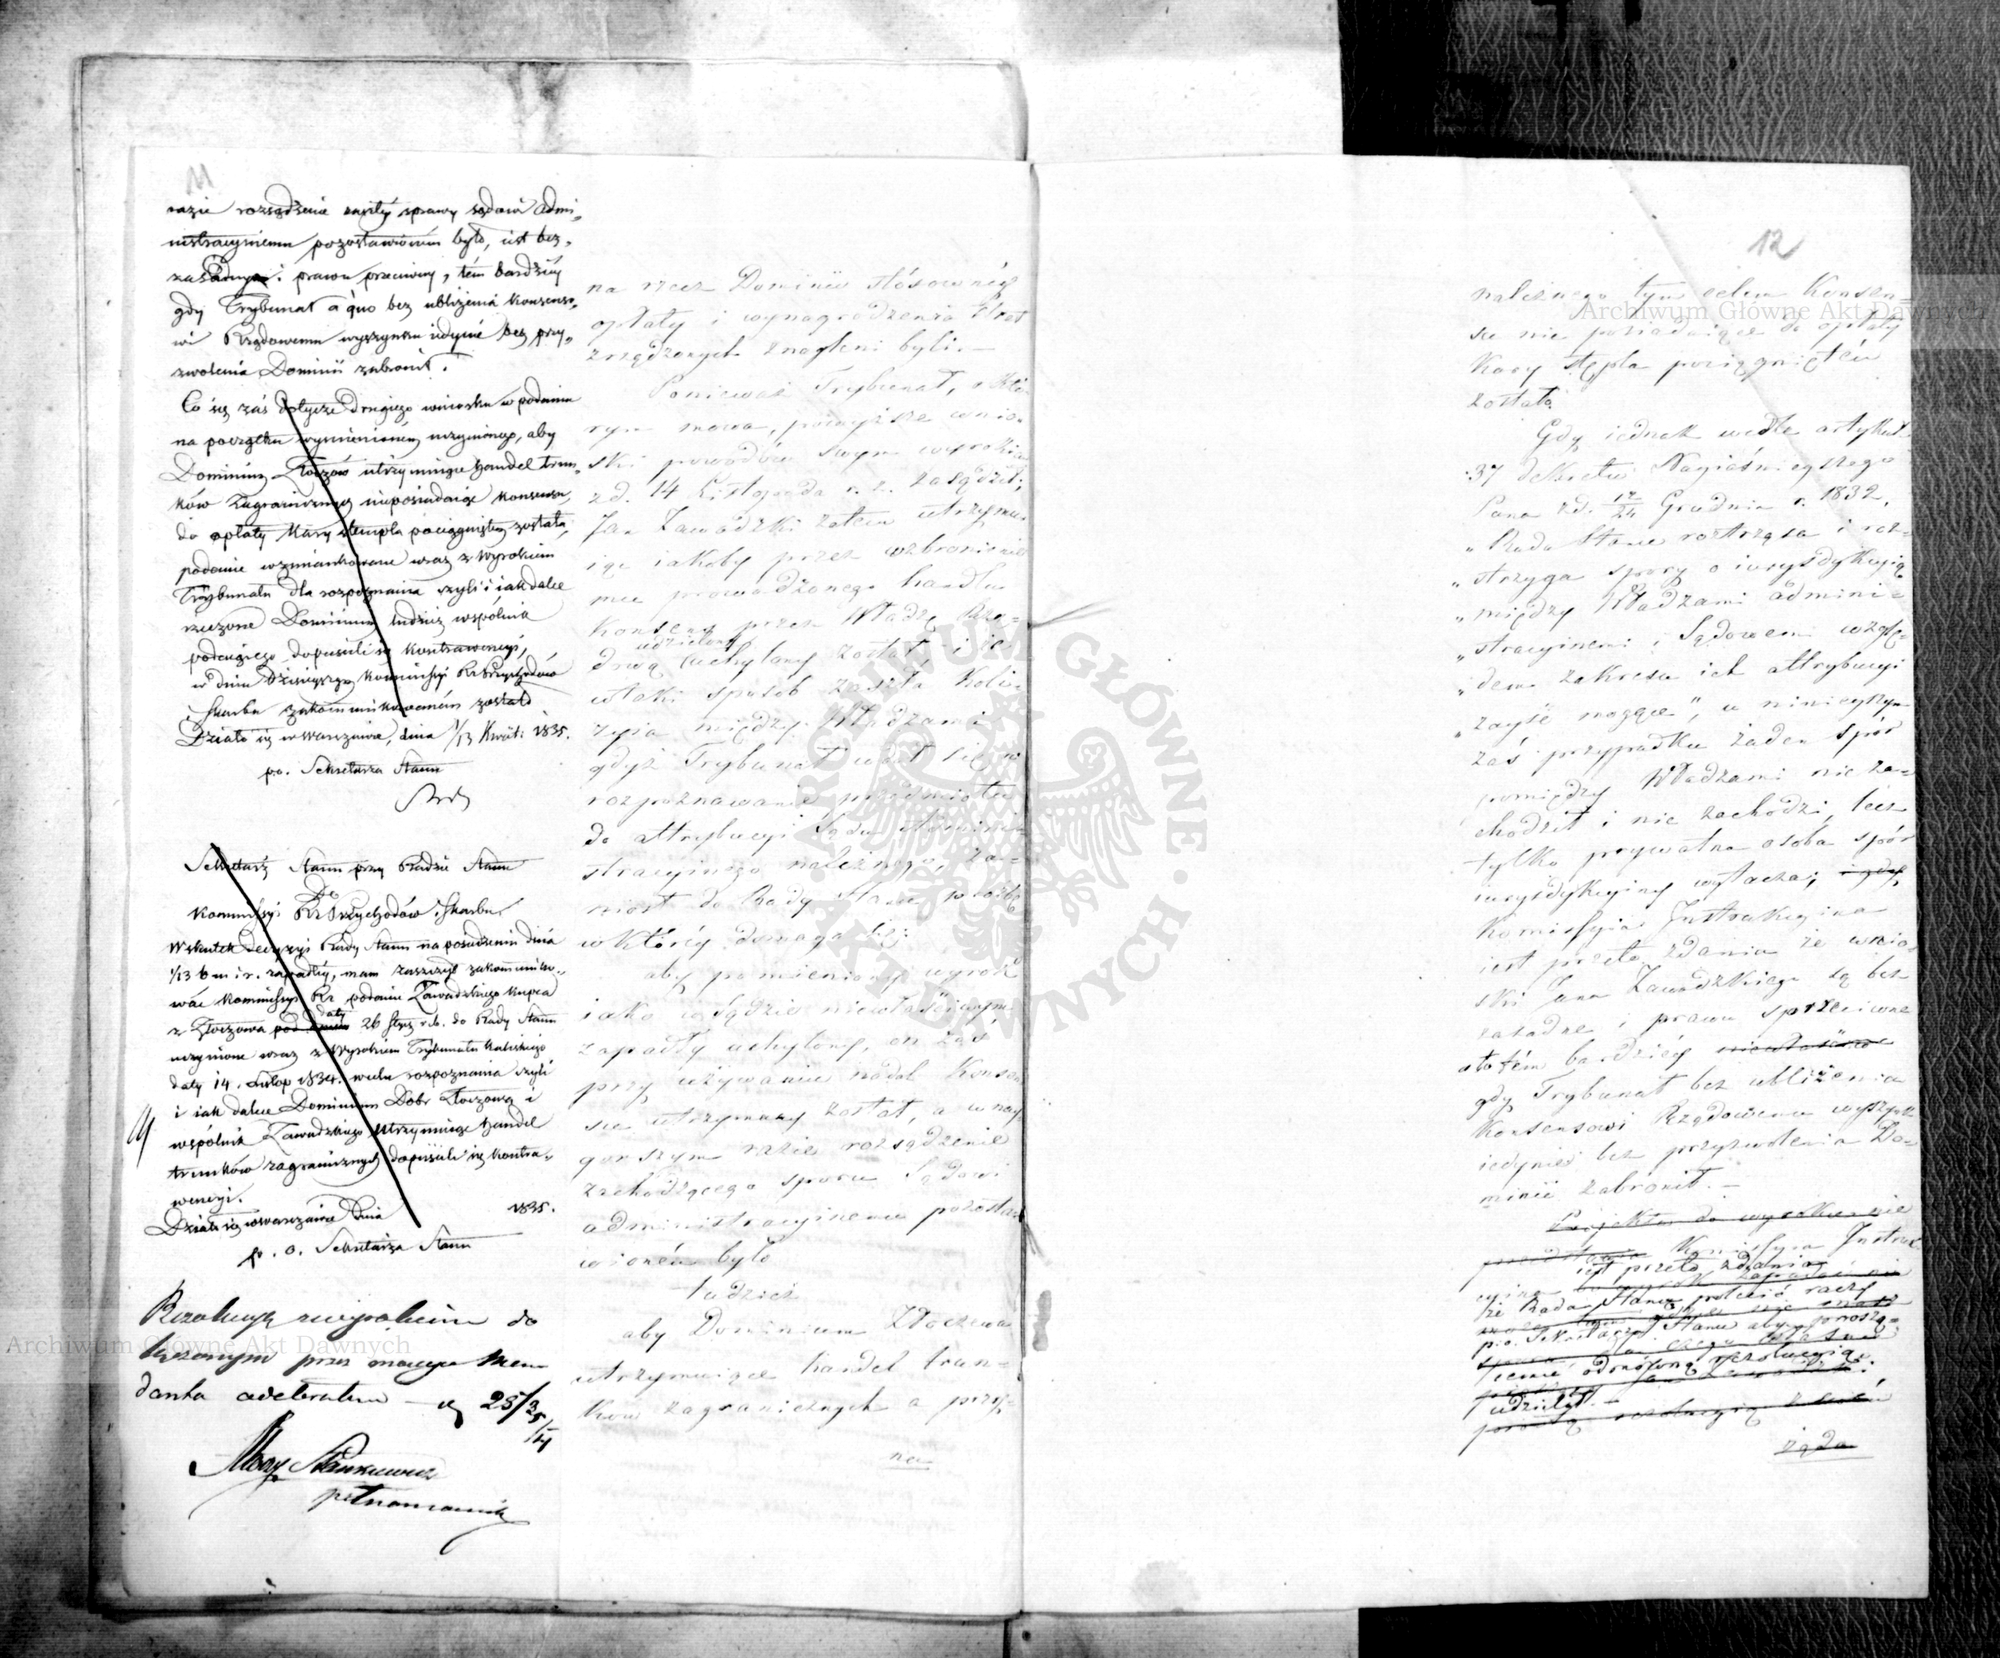 11
razie rozsądzenie zaszłéy sprawy sądowi admi-
nistracyinemu pozostawionem było, iest bez-
zasadnym i prawu przeciwny, tém bardziéy
gdy Trybunał a quo bez ubliżenia konsenso-
wi Rządowemu wyszynku iedynie bez przy-
zwolenia Dominii zabronił.
Co się zaś dotycze drugiego wniosku w podaniu
na początku wymienioném uczynionego, aby
Dominium Złoczów utrzymuiące handel trun-
ków zagranicznych nieposiadaiąc konsensu,
do opłaty kary stempla pociągnięte zostało,
podanie wzmiankowane wraz z wyrokiem
Trybunału dla rozpoznania czyli i iak dalece
rzeczone Dominium tudzież wspólnik
podrugiego dopuścili się kontrawencyi,
w dniu dzisieyszym Kommissyi Rz Przychodów
i Skarbu zakommunikowaném zostało
Działo się w Warszawie, dnia 1/13 Kwiet: 1835.
po. Sekretarza Stanu
Sekretarz Stanu przy Radzie Stanu
Do
Kommissyi Rz Przychodów i Skarbu
Wskutek decyzyi Rady Stanu na posiedzeniu dnia
1/13 b. m. i r. zapadłéy, mam zaszczyt zakommuniko-
wać Kommissyi Rz podanie Zawadzkiego kupca
daty
z Złoczowa pod dniem 26 Stycz r. b. do Rady Stanu
uczynione wraz z wyrokiem Trybunału Kaliskiego
daty 14. Listop 1834. w celu rozpoznania czyli
i iak dalece Dominium Dóbr Złoczowa i
wspólnik Zawadzkiego utrzymuiąc handel
trunków zagranicznych dopuścili się kontra-
wencyi.
Działo się w Warszawie dnia 1835.
p. o. Sekretarza Stanu
Rezolucyę do
przez mocy
danta odebrałem d 25/4 35
Stankiewicz
pełnomocnik
na rzecz Dominii stósownéy
opłaty i wynagrodzenia strat
zrządzonych znagleni byli. -
Ponieważ Trybunał, o któ-
rym mowa, powyższe wnio-
ski powodów swym wyrokiem
z d. 14 Listopada r. z. zasądził;
Jan Zawadzki zatem utrzymu-
iąc iakoby przez wzbronienie
mu prowadzonego handlu
Konsens przez Władzę Rzą-
udzielony
dową uchylony został, i że
w taki sposób zaszła Koli-
zyia między Władzami
gdyż Trybunał wdał się w
rozpoznawanie przedmiotu
do attrybucyi Sądu Admini-
stracyinego należnego, za-
niosł do Rady Stanu prośbę
w któréy domaga się:
aby pomieniony wyrok
iako w Sądzie niewłaściwym
zapadły uchylony, on zaś
przy używaniu nadal Konsen-
su utrzymany został, a w nay-
gorszym razie rozsądzenie
zachodzącego sporu Sądowi
administracyinemu pozosta-
wioném było
tudzież
aby Dominium Złoczewa
utrzymuiące handel trun-
ków zagranicznych a
na
12
należnego tym celem Konsen-
su nie posiadaiące do opłaty
Kary stępla pociągnięté
zostało.
Gdy iednak wedle artykuł
37 dekretu Nayiaśnieyszego
Pana z d. 12/24 Grudnia r. 1832,
„Rada Stanu roztrząsa i roz-
„strzyga spory o iurysdykcyią
„między Władzami admini-
„stracyinemi i Sądowemi wzglę-
„dem zakresu ich attrybucyi
„zayść mogące", w ninieyszym
zaś przypadku żaden spór
pomiędzy Władzami nie za-
chodził i nie zachodzi, lecz
tylko prywatna osoba spór
iurysdykcyiny wytacza; i gdy
Komissyia Instrukcyina
iest przeto zdania że wnio-
ski Jana Zawadzkiego są bez
zasadne i prawu sprzeciwne
a to tém bardziéy
gdy Trybunał bez ubliżenia
Konsensowi Rządowemu wyszynk
iedynie bez przyzwolenia Do-
minii zabronił. -
Proiektu do wyroku nie
Komissyia Instruk-
iest przeto zdania
cyina
że Rada Stanu polecić raczy
p.o. Sekretarza Stanu aby proszą-
cemu odmówną rezolucyią
udzielił. -
proszą rezolucyią
żąda
Archiwum Główne Akt Dawnych
Archiwum Główne Akt Dawnych
ARCHIWUM GŁÓWNE AKT DAWNYCH